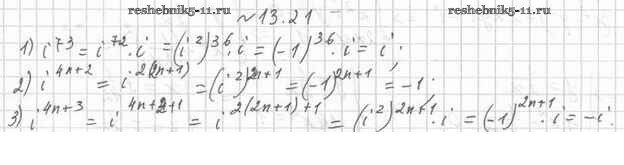 reshebnik5-11.ru reshebnik5-11.ru
№13.21
1) i^73 = i^72 · i = (i^2)^36 · i = (-1)^36 · i = i;
2) i^(4n+2) = i^(2(2n+1)) = (i^2)^(2n+1) = (-1)^(2n+1) = -1;
3) i^(4n+3) = i^(4n+2+1) = i^(2(2n+1)+1) = (i^2)^(2n+1) · i = (-1)^(2n+1) · i = -i.